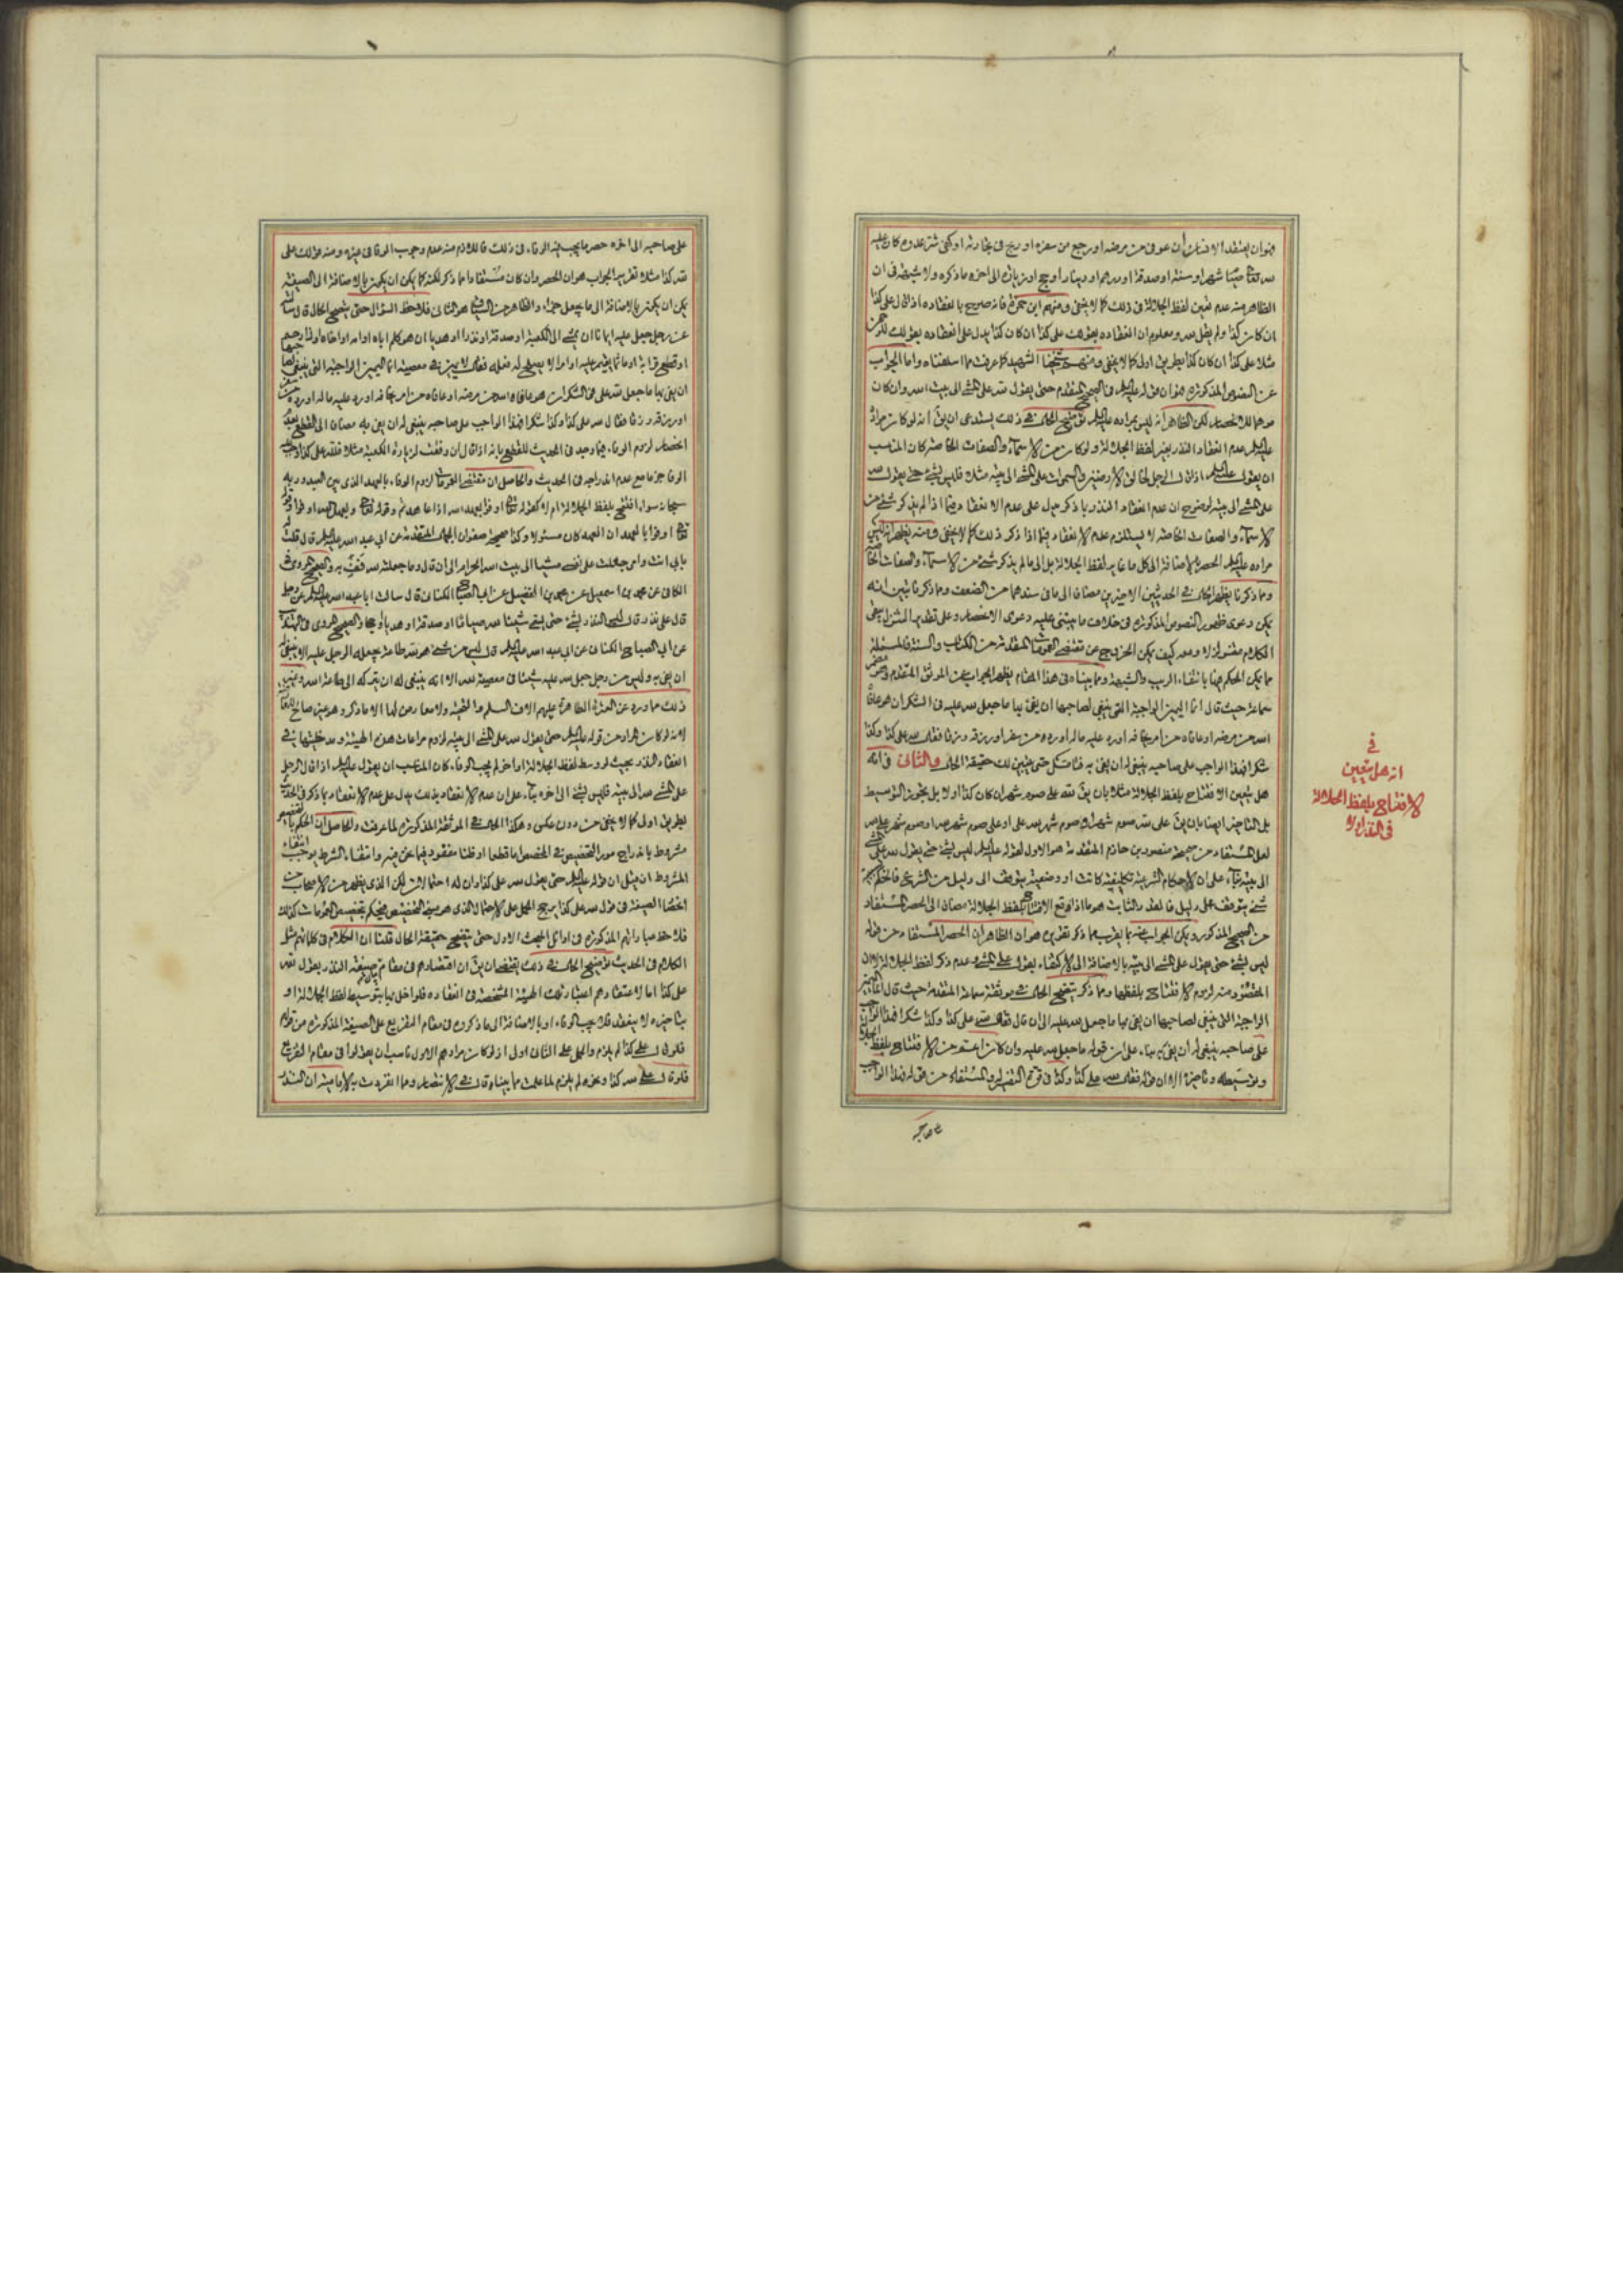 فهو ان يعتقد الانسان ان عوفى من مرضه او رجع من سفره او ربح فى تجارته او كفى شر عدوه كان عليه
لله تعالى صيام شهر او سنة او صدقة او درهم او دينار او حج او زيارة الى اخر ما ذكره ولا شبهة فى ان
الظاهر منه عدم تعين لفظ الجلالة فى ذلك كما لا يخفى ومنهم ابن حمزة فانه صريح بانعقاده اذ قال على كذا
ان كان كذا ولم يقل لله ومعلوم ان انعقاده بقولك على كذا ان كان كذا يدل على انعقاده بقولك للرحمن
مثلا على كذا ان كان كذا بطريق اولى كما لا يخفى ومنهم شيخنا الشهيد كما عرفت مما اسلفناه واما الجواب
عن النصوص المذكورة فهو ان قوله عليه السلم فى الصحيح المتقدم حتى يقول لله على المشى الى بيت الله وان كان
موهما للانحصار لكن الظاهر انه ليس بمراده عليه السلم توضيح الحال فى ذلك يستدعى ان يق انه لو كان مراده
عليه السلم عدم انعقاد النذر بغير لفظ الجلالة ولو كان من الاسماء والصفات الخاصة كان المناسب
ان يقول عليه السلم اذا قال الرجل لخالق الارضين والسموات على المشى الى بيته مثلا فليس بشئ حتى يقول لله
على المشى الى بيته لوضوح ان عدم انعقاد النذر بما ذكر يدل على عدم الانعقاد فيما اذا لم يذكر شئ من
الاسماء والصفات الخاصة ولا يستلزم عدم الانعقاد فيما اذا ذكر ذلك كما لا يخفى فمنه يظهر انه ليس
مراده عليه السلم الحصر بالاضافة الى كل ما غاير لفظ الجلالة بل الى ما لم يذكر شئ من الاسماء والصفات الخاصة
ومما ذكرنا يظهر الحال فى الحديثين الاخيرين مضافا الى ما فى سندهما من الضعف ومما ذكرنا تبين انه
يمكن دعوى ظهور النصوص المذكورة فى خلاف ما يبتنى عليه دعوى الانحصار وعلى تقدير التنزل يبقى
الكلام مقبولا ولا ومعه كيف يمكن الخروج عن مقتضى العمومات المتقدمة من الكتاب والسنة فالمسئلة
مما يمكن الحكم فيها بانتفاء الريب والشبهة ومما بيناه فى هذا المقام يظهر الجواب عن الموثق المتقدم وهو مضمر
سماعة حيث قال انما اليمين الواجبة التى ينبغى لصاحبها ان يفى بها ما جعل لله عليه فى الشكر ان هو عافاه
الله من مرضه او عافاه من امر يخافه او رد عليه ماله او رده من سفر او رزقه رزقا فقال لله على كذا وكذا
شكرا فهذا الواجب على صاحبه ينبغى له ان يفى به فتامل حتى يتبين لك حقيقة الحال والثانى فى انه
هل يتعين الافتتاح بلفظ الجلالة مثلا بان يق لله على صوم شهر ان كان كذا اولا بل يجوز التوسيط
بل التاخير ايضا بان يق على لله صوم شهر او صوم شهر لله على او على صوم شهر لله او صوم شهر على لله
لعل المستفاد من صحيحة منصور بن حازم المتقدمة هو الاول لقوله عليه السلم ليس بشئ حتى يقول لله على المشى
الى بيته على ان الاحكام الشرعية تكليفية كانت او وضعية يتوقف الى دليل من الشرع فالحكم بصحة
شئ يتوقف على دليل فالقدر الثابت هو ما اذا وقع الافتتاح بلفظ الجلالة مضافا الى الحصر المستفاد
من الصحيح المذكور ويمكن الجواب عنه بما يقرب مما ذكر تقريره هو ان الظاهر ان الحصر المستفاد من قوله
ليس بشئ حتى يقول على المشى الى بيته بالاضافة الى الاكتفاء بقول على المشى وعدم ذكر لفظ الجلالة لا ان
المقصود منه لزوم الافتتاح بلفظها ومما ذكر يتضح الحال فى موثقة سماعة المتقدمة حيث قال انما اليمين
الواجبة التى ينبغى لصاحبها ان يفى بها ما جعل لله عليه الى ان قال فقال لله على كذا وكذا شكرا فهذا الواجب
على صاحبه ينبغى له ان يفى به بناء على ان قوله ما جعل لله عليه وان كان اعم من الافتتاح بلفظ الجلالة
وتوسيطه وتاخيره الا ان قوله فقال لله على كذا وكذا فى قوة التفسير له والمستفاد من قوله فهذا الواجب
على صاحبه
فى
انه هل يتعين
الافتتاح بلفظ الجلالة
فى النذر اولا
على صاحبه الى اخره حصر ما يجب فيه الوفاء فى ذلك فاللازم منه عدم وجوب الوفا فى غيره ومنه قولك على
لله كذا مثلا تقريب الجواب هو ان الحصر وان كان مستفادا مما ذكر لكنه كما يمكن ان يكون بالاضافة الى الصيغة
يمكن ان يكون بالاضافة الى ما يجعل جزاء والظاهر من السياق هو الثانى فلاحظ السؤال حتى يتضح الحال قال سالته
عن رجل جعل عليه ايمانا ان يمشى الى الكعبة او صدقة او نذرا او هديا ان هو كلم اباه او امه او اخاه او ذا رحم
او قطع قرابة او ماثما يقيم عليه او امرا لا يصلح له فعله فقال لا يمين فى معصية انما اليمين الواجبة التى ينبغى لصاحبها
ان يفى بها ما جعل لله على فى الشكر ان هو عافاه الله من مرضه او عافاه من امر يخافه او رد عليه ماله او رده من سفر
او رزقه رزقا فقال لله على كذا وكذا شكرا فهذا الواجب على صاحبه ينبغى له ان يفى به مضافا الى القطع بعدم
انحصار لزوم الوفاء فيما وجد فى الحديث للقطع بانه اذا قال ان وفقت لزيارة الكعبة مثلا فلله على كذا وجب عليه
الوفا جزما مع عدم اندراجه فى الحديث والحاصل ان مقتضى العمومات لزوم الوفاء بالعهد الذى بين العبد وربه
سبحانه سواء افتتح بلفظ الجلالة ام لا كقوله تعالى اوفوا بعهد الله اذا عاهدتم وقوله تعالى وبعهد الله اوفوا وقوله
تعالى اوفوا بالعهد ان العهد كان مسئولا وكذا صحيحة صفوان الجمال المتقدمة عن ابى عبد الله عليه السلم قال قلت له
بابى انت وامى جعلت على نفسى مشيا الى بيت الله الحرام الى ان قال وما جعلته لله فف به والصحيح المروى فى
الكافى عن محمد بن اسمعيل عن محمد بن الفضيل عن ابى الصباح الكنانى قال سالت ابا عبد الله عليه السلم عن رجل
قال على نذر قال ليس النذر بشئ حتى يسمى شيئا لله صياما او صدقة او هديا او حجا والصحيح المروى فى التهذيب
عن ابى الصباح الكنانى عن ابى عبد الله عليه السلم قال ليس من شئ هو لله طاعة يجعله الرجل عليه الا ينبغى له
ان يفى به وليس من رجل جعل لله عليه شيئا فى معصية الله الا انه ينبغى له ان يتركه الى طاعة الله وغير
ذلك مما ورد عن العترة الطاهرة عليهم الاف السلم والتحية ولا معارض لها الا ما ذكر وهو غير صالح للمعارضة
لانه لو كان المراد من قوله عليه السلم حتى يقول لله على المشى الى بيته لزوم مراعات هذه الهيئة ومدخليتها فى
انعقاد النذر بحيث لو وسط لفظ الجلالة او اخر لم يجب الوفاء كان المناسب ان يقول عليه السلم اذا قال الرجل
على المشى لله الى بيته فليس بشئ الى اخره بناء على ان عدم الانعقاد بذلك يدل على عدم الانعقاد بما ذكر فى الحديث
بطريق اولى كما لا يخفى من دون عكس وهكذا الحال فى الموثقة المذكورة لما عرفت والحاصل ان الحكم بالتخصيص
مشروط باندراج مورد التخصيص فى المخصص اما قطعا او ظنا مفقود فيما نحن فيه وانتفاء الشرط يوجب انتفاء
المشروط ان قيل ان قوله عليه السلم حتى يقول لله على كذا وان له احتمالات لكن الذى يظهر من الاصحاب من
انحصار الصيغة فى قول لله على كذا يرجح الحمل على الاحتمال الذى هو مبنى التخصيص فيحكم بتخصيص العمومات كذلك
فلاحظ عباراتهم المذكورة فى اوائل المبحث الاول حتى يتضح حقيقة الحال قلنا ان الكلام فى كلماتهم مثل
الكلام فى الحديث توضيح الحال فى ذلك يقتضى ان يق ان اقتصارهم فى مقام بيان صيغة النذر بقول لله
على كذا اما لاعتقادهم اعتبار تلك الهيئة الشخصية فى انعقاده فلو اخل بها بتوسيط لفظ الجلالة او
بتاخيره لا ينعقد فلا يجب الوفاء او بالاضافة الى ما ذكروه فى مقام التفريع على الصيغة المذكورة من قولهم
فلو قال على كذا لم يلزم والحمل على الثانى اولى اذ لو كان مرادهم الاول ناسب ان يقولوا فى مقام التفريع
فلو قال على لله كذا ونحوه لم يلزم لما علمت مما بيناه قال فى الانتصار ومما انفردت به الامامية ان النذر